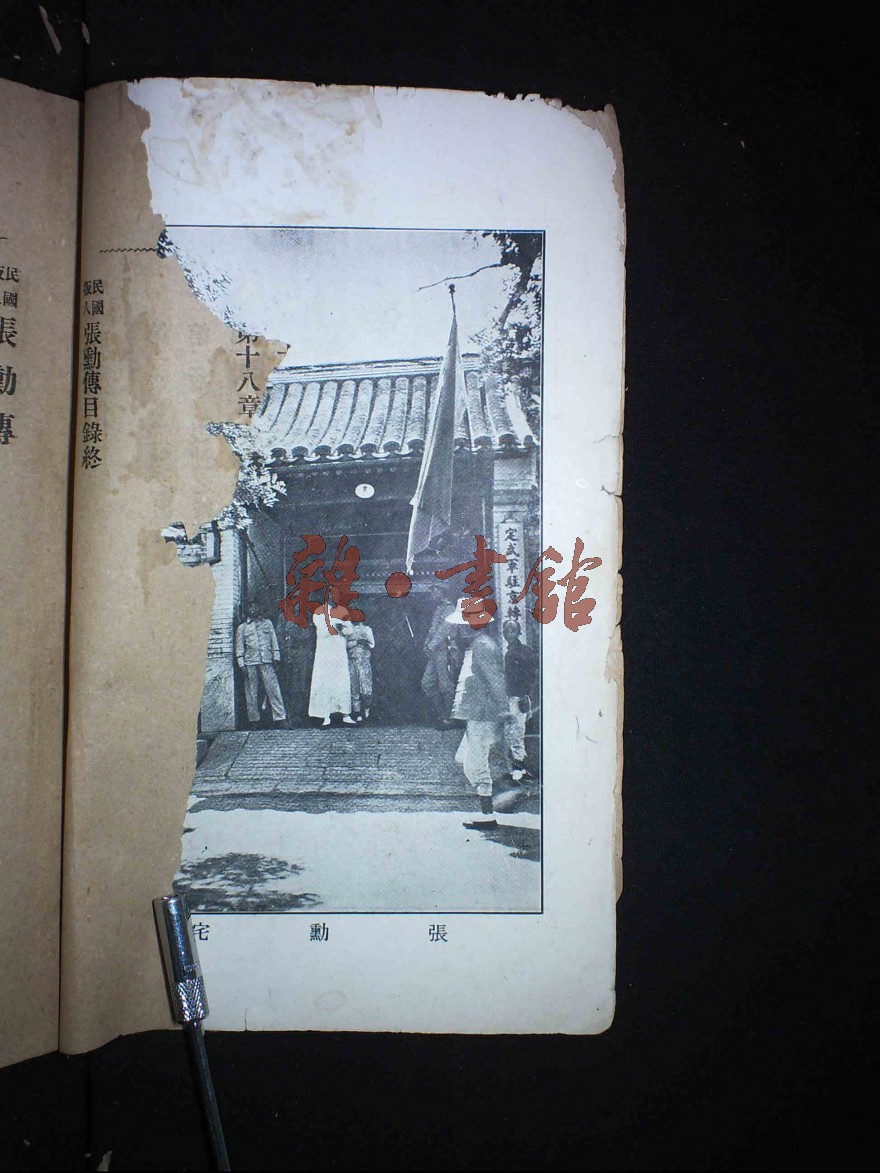 定武軍駐京
雜·書館
張勳宅
第十八章
民國叛人張勳傳目錄終
民國叛人張勳傳